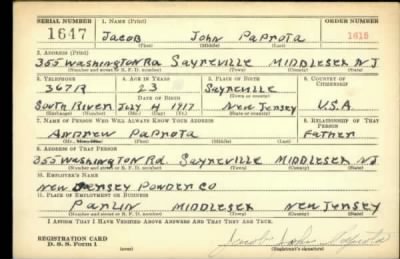 SERIAL NUMBER 1. NAME (Print) ORDER NUMBER
1647 Jacob John Paprota 1615
(First) (Middle) (Last)
2. ADDRESS (Print)
355 Washington Rd Sayreville Middlesex NJ
(Number and street or R. F. D. number) (Town) (County) (State)
3. TELEPHONE 4. AGE IN YEARS 5. PLACE OF BIRTH 6. COUNTRY OF CITIZENSHIP
367R 23 Sayreville
DATE OF BIRTH
South River July 4 1917 New Jersey U.S.A.
(Exchange) (Number) (Mo.) (Day) (Yr.) (State or country)
7. NAME OF PERSON WHO WILL ALWAYS KNOW YOUR ADDRESS 8. RELATIONSHIP OF THAT PERSON
Andrew Paprota Father
(First) (Middle) (Last)
9. ADDRESS OF THAT PERSON
355 Washington Rd. Sayreville Middlesex NJ
(Number and street or R. F. D. number) (Town) (County) (State)
10. EMPLOYER'S NAME
New Jersey Powder Co
11. PLACE OF EMPLOYMENT OR BUSINESS
Parlin Middlesex New Jersey
(Number and street or R. F. D. number) (Town) (County) (State)
I AFFIRM THAT I HAVE VERIFIED ABOVE ANSWERS AND THAT THEY ARE TRUE.
REGISTRATION CARD
D. S. S. Form 1 (over) Jacob John Paprota
(Registrant's signature)